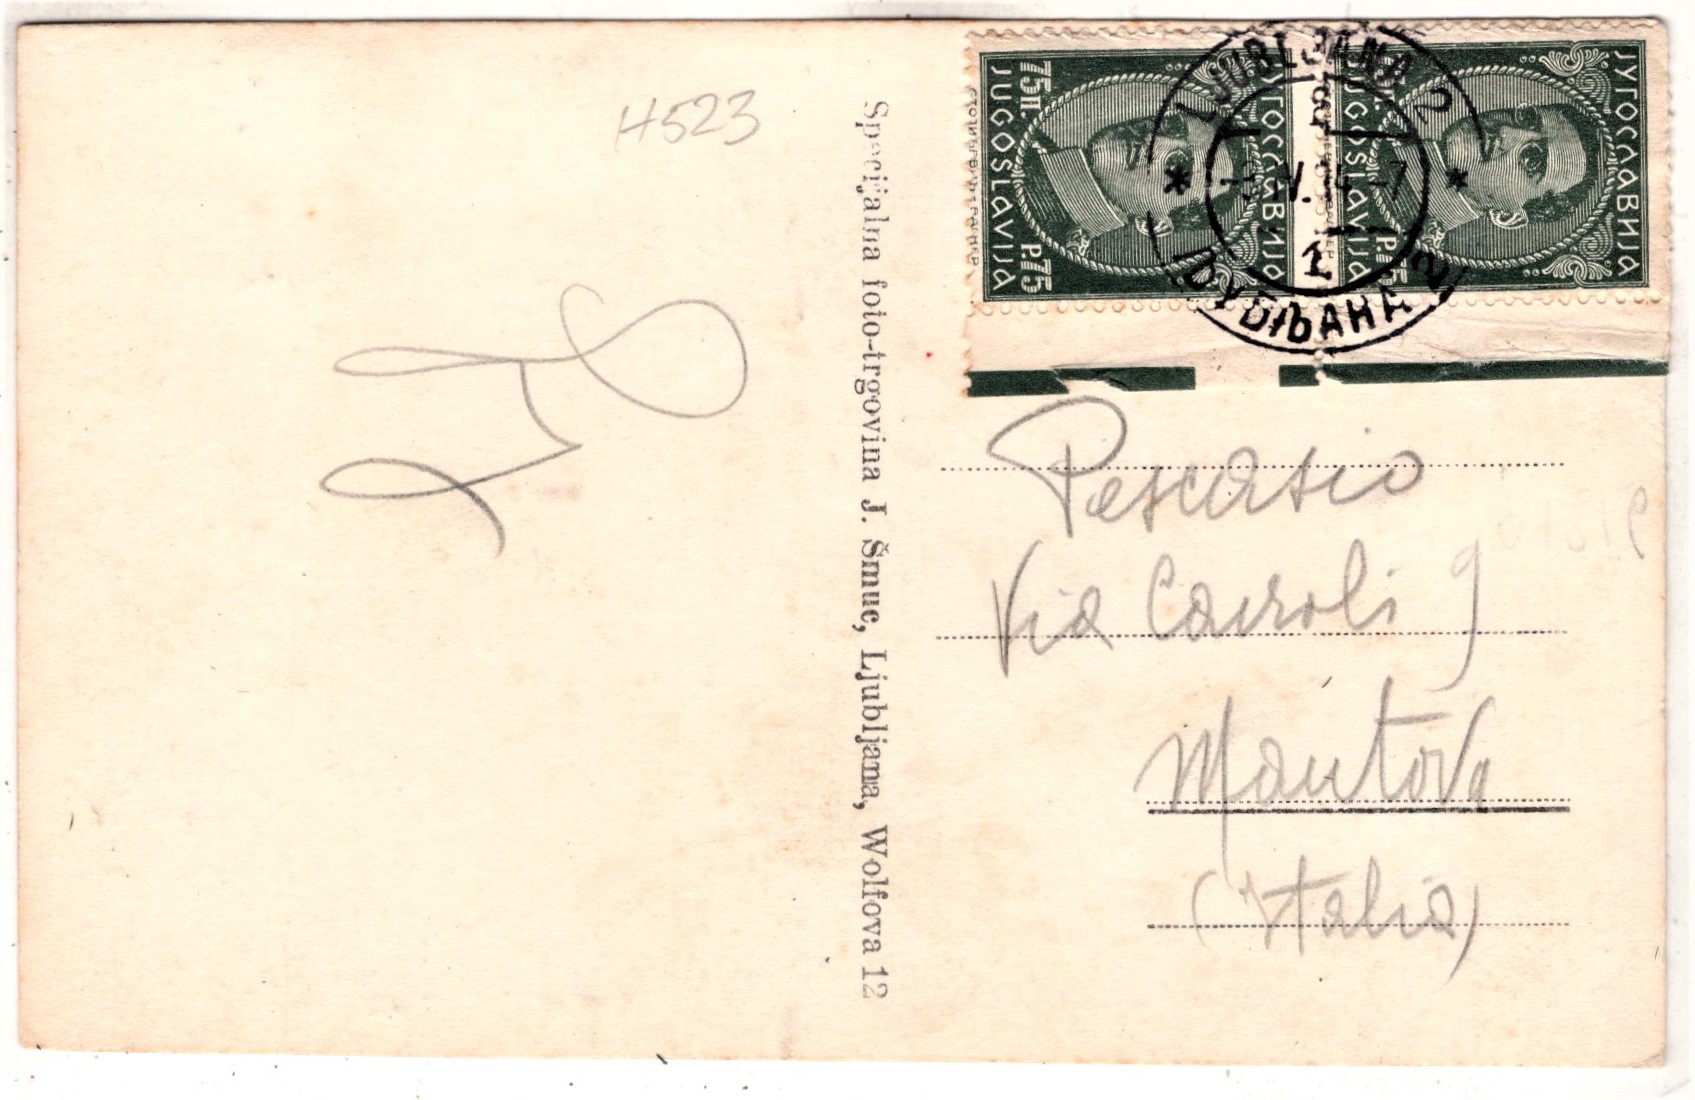 H523
Specijalna foto-trgovina J. Šmuc, Ljubljana, Wolfova 12
75П. P.75
JUGOSLAVIJA
ЈУГОСЛАВИЈА
P.75
JUGOSLAVIJA
ЈУГОСЛАВИЈА
LJUBLJANA 2
ЉУБЉАНА 2
Pescasio
Via Cairoli 9
Mantova
(Italia)